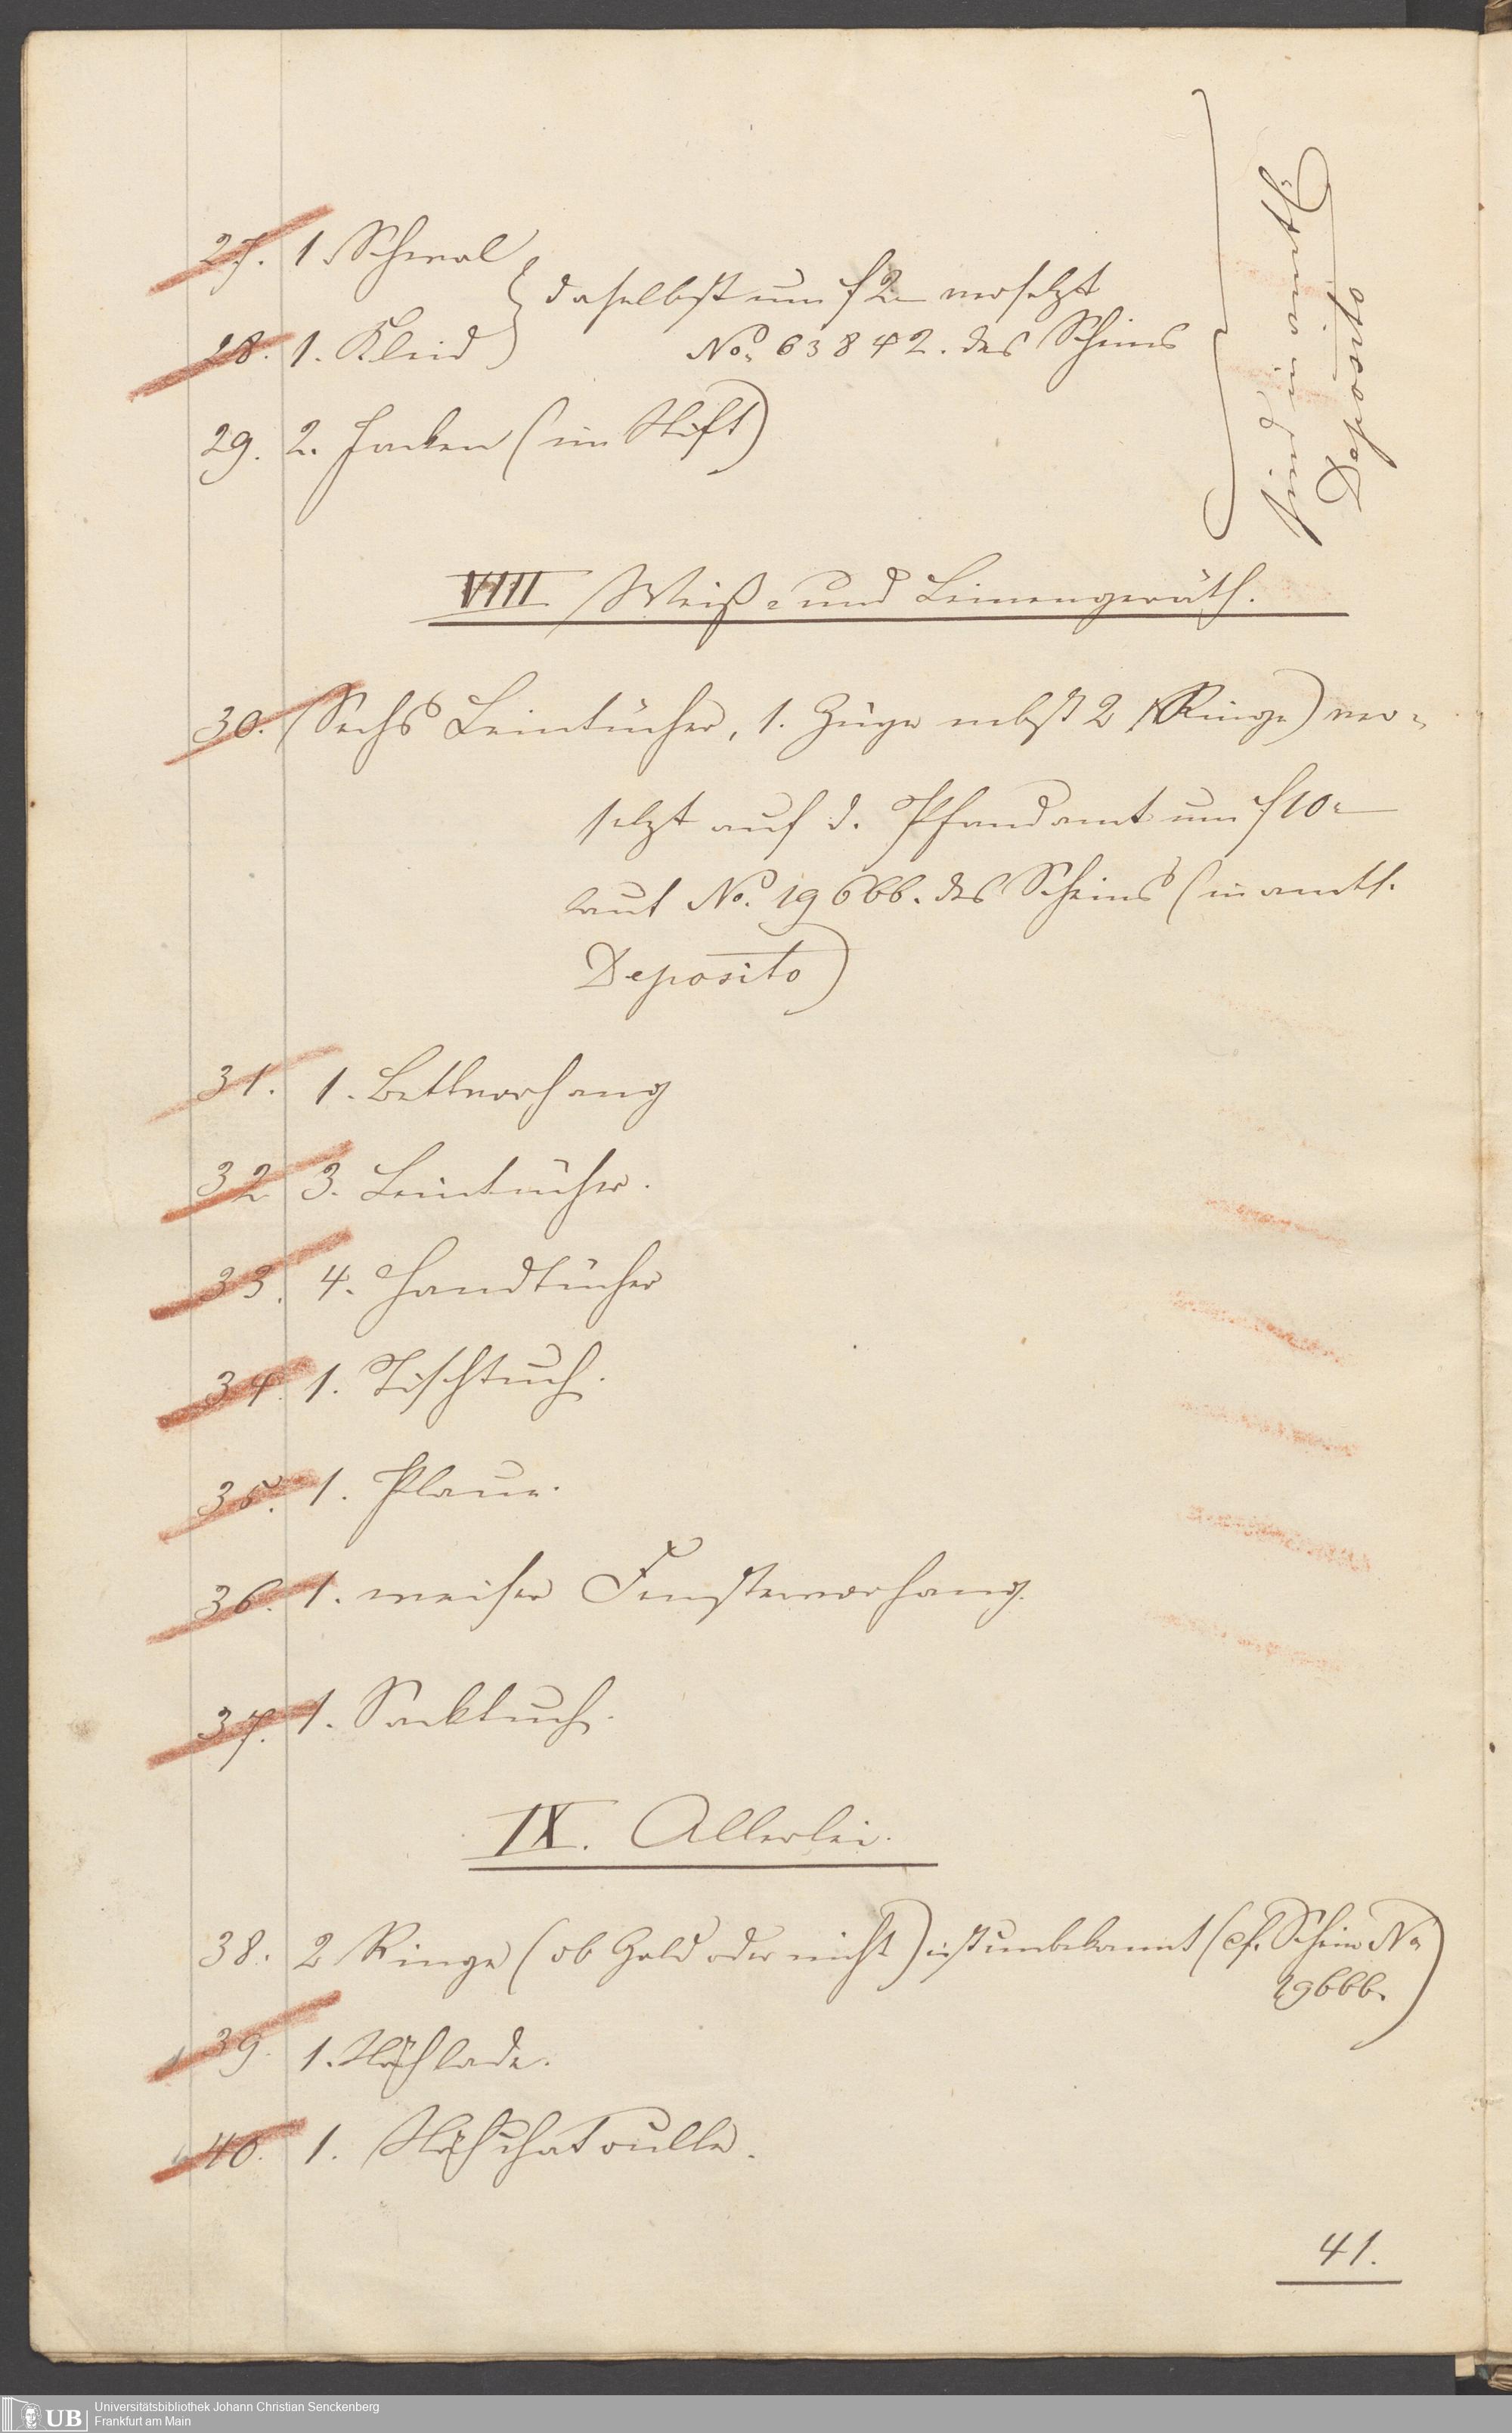 27. 1. Schwal
daselbst um f 2.– versetzt
28. 1. Kleid
No. 63842. des Scheins
29. 2. Jacken (im Stift)
sind in amtl.
Deposito
VIII Weiß- und Leinengeräth.
30. (Sechs Leintücher, 1. Züge nebst 2 Ringe) ver-
setzt auf d. Pfandamt um f 10.–
laut No. 19666. des Scheins (in amtl.
Deposito)
31. 1. Bettvorhang
32 3. Leintücher.
33. 4. Handtücher
34. 1. Tischtuch.
35. 1. Plaue.
36. 1. weiser Fenstervorhang.
37. 1. Sacktuch.
IX. Allerlei.
38. 2 Ringe (ob Gold oder nicht) ist unbekannt (cf. Schein No
19666.)
39. 1. Nählade.
40. 1. Nähchatoulle.
41.
UB
Universitätsbibliothek Johann Christian Senckenberg
Frankfurt am Main